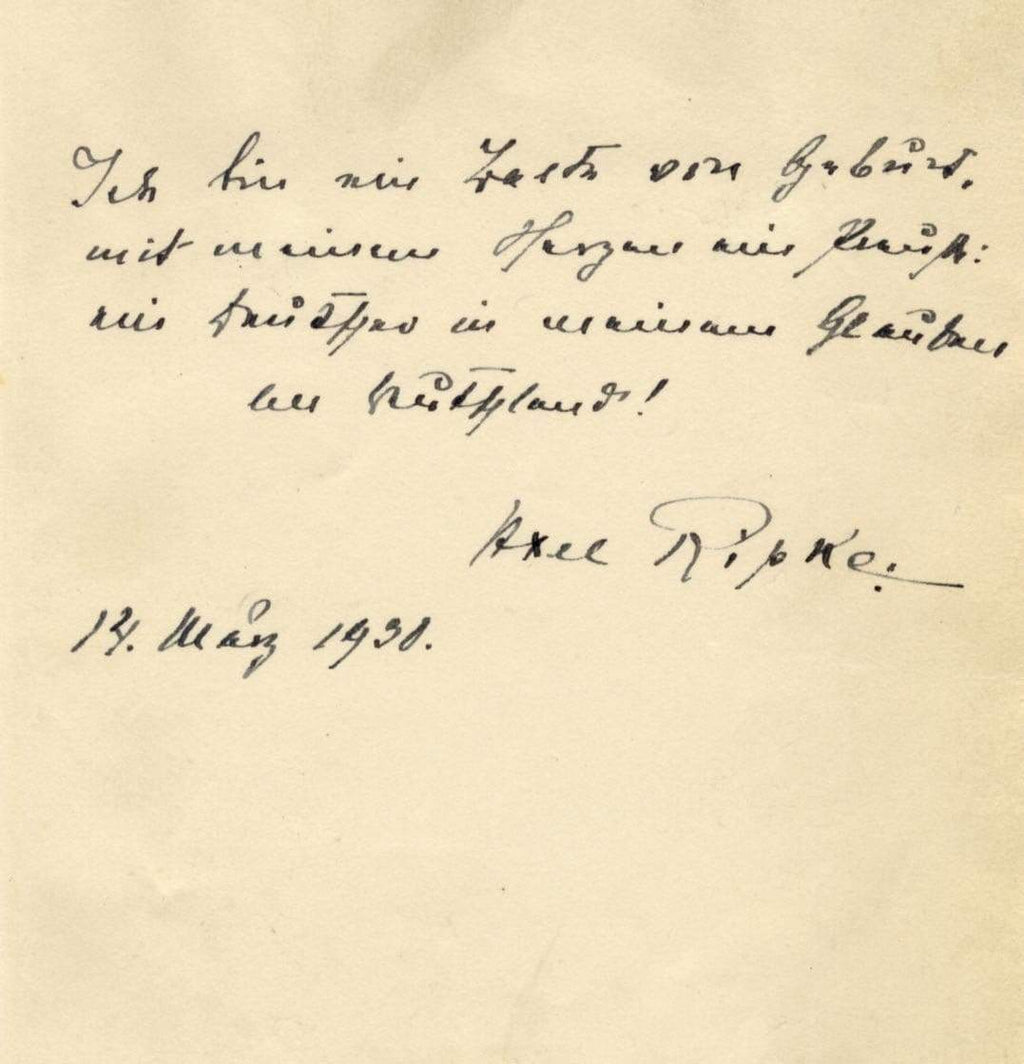 Ich bin ein Balte von Geburt,
mit meinem Herzen ein Preuße:
ein Deutscher in meinem Glauben
an Deutschland!
Axel Ripke.
14. März 1930.